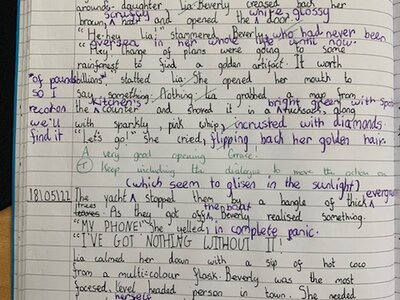 around. daughter Lia. Beverly creased back her
scruffy white, glossy
brown ^ hair and opened the ^ door.
"He-hey Lia!" stammered Beverly who had never been
oversea in her whole life until now.
"Hey! Change of plans were going to some
rainforest to find a golden artifact. It worth
"of pounds billions" stated Lia. She opened her mouth to
so I say something. Nothing. Lia grabbed a map from
kitchen's bright green with
reckon the ^ counter and shoved it in a rucksack, along
we'll with sparkly, pink whip, incrusted with diamonds.
find it "Let's go!" She cried, flipping back her golden hair.
A very good opening Grace.
T Keep including the dialogue to move the action on
(which seem to glisen in the sunlight)
18/05/22 The yacht ^ stopped them by a bangle of thick ^ evergreen
trees. As they got off ^ the boat, Beverly realised something.
"MY PHONE!" She yelled, in complete panic.
"I'VE GOT NOTHING WITHOUT IT!"
Lia calmed her down with a sip of hot coco
from a multi-colour flask. Beverly was the most
focesed, level headed person in town. She needed
herself